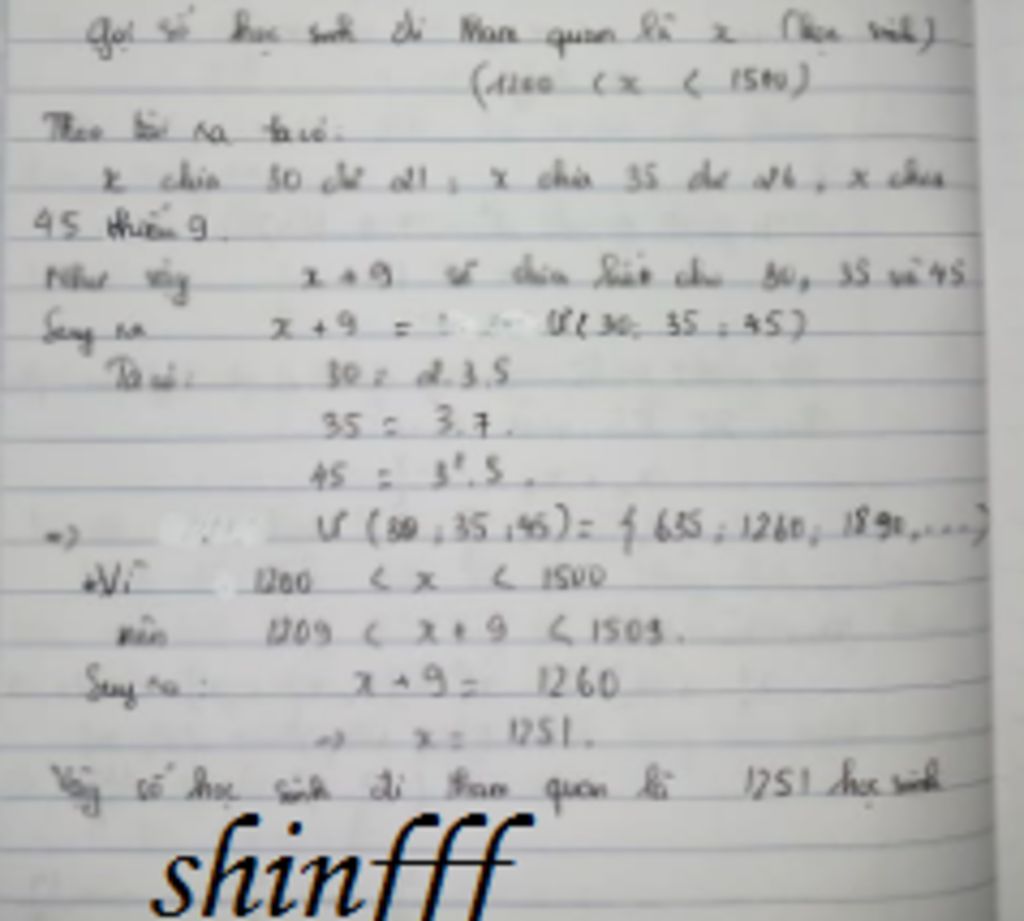 Gọi số học sinh đi tham quan là x (học sinh)
(1200 < x < 1500)
Theo bài ra ta có:
x chia 30 dư 21; x chia 35 dư 26, x chia
45 thiếu 9.
Như vậy x + 9 sẽ chia hết cho 30, 35 và 45
Suy ra x + 9 = (30; 35; 45)
Ta có: 30 = 2.3.5
35 = 3.7.
45 = 3².5.
=> (30; 35; 45) = { 635; 1260; 1890,....}
Vì 1200 < x < 1500
nên 1209 < x + 9 < 1509.
Suy ra: x + 9 = 1260
=> x = 1251.
Vậy số học sinh đi tham quan là 1251 học sinh
shinfff